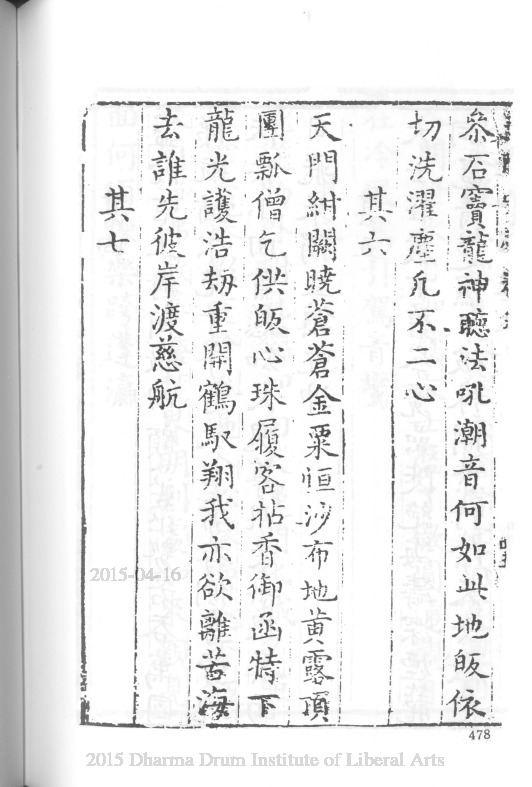 叅石竇龍神聽法吼潮音何如此地皈依
切洗濯塵凡不二心
其六
天門紺闕曉蒼蒼金粟恒沙布地黄露頂
團瓢僧乞供皈心珠履客拈香御函特下
龍光護浩劫重開鶴馭翔我亦欲離苦海
去誰先彼岸渡慈航
其七
2015-04-16
478
2015 Dharma Drum Institute of Liberal Arts